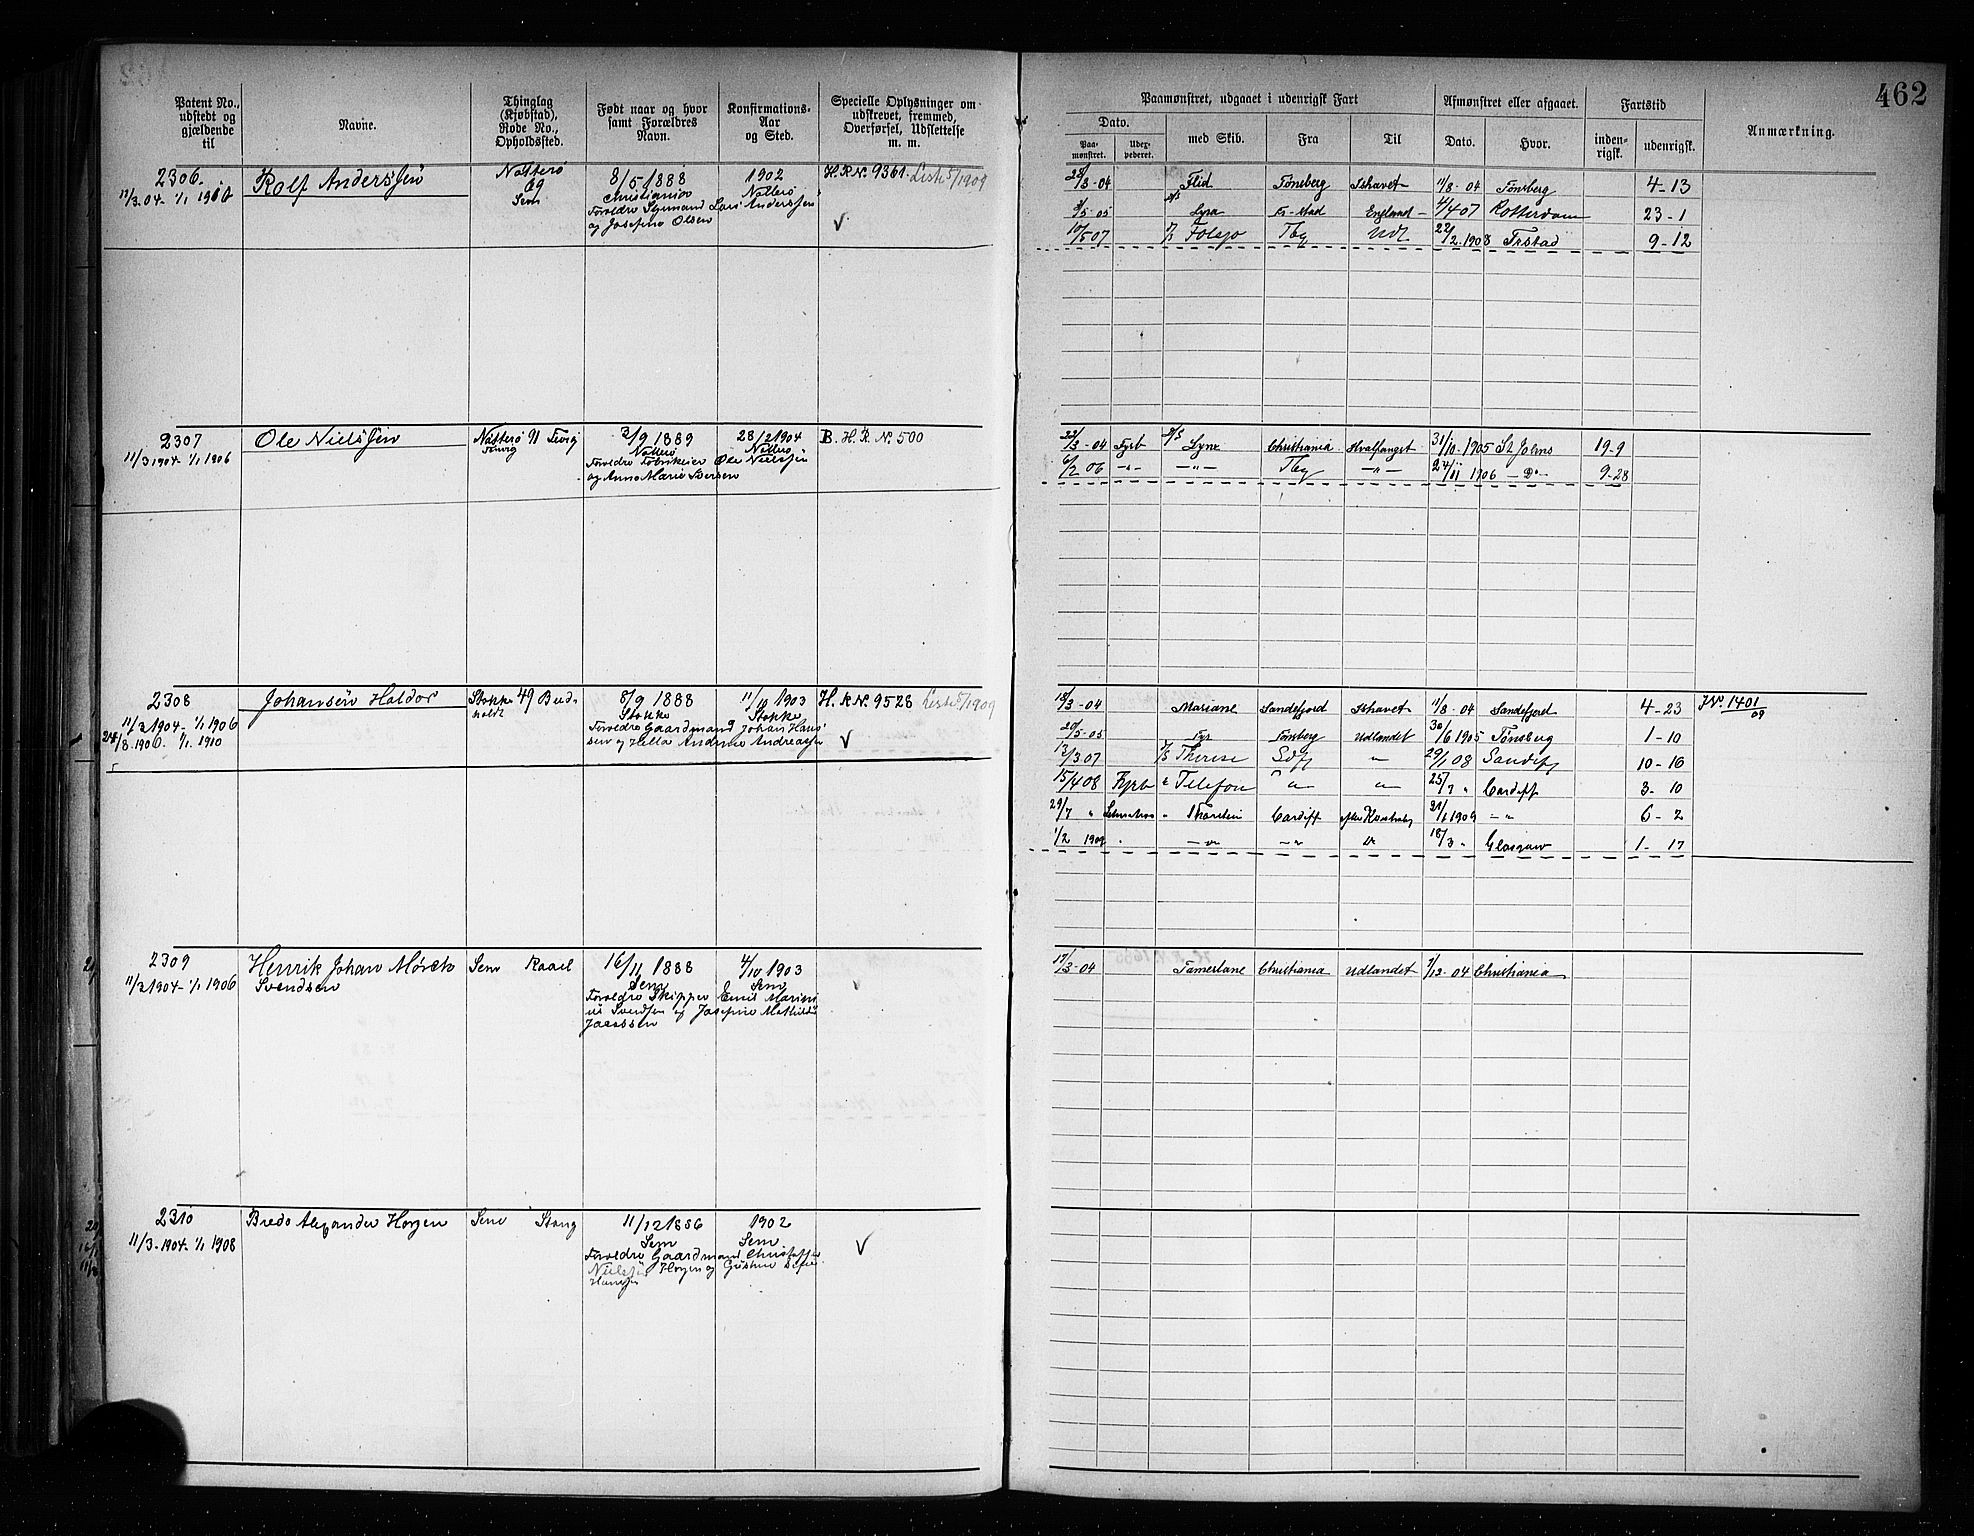 462
Patent No., udstedt og gjældende til
Navne.
Thinglag (Kjøbstad), Rode No., Opholdssted.
Født naar og hvor samt Forældres Navn.
Konfirmations-Aar og Sted.
Specielle Oplysninger om udskrevet, fremmed, Overførsel, Udslettelse m. m.
Paamønstret, udgaaet i udenrigsk Fart
Afmønstret eller afgaaet.
Fartstid
Anmærkning.
Dato.
med Skib.
Fra
Til
Dato.
Hvor.
inden-rigsk.
udenrigsk.
Paa-mønstret.
Uder-pederet.
2306. Rolf Anderssen Nøtterø 8/5 1888 1902 H.R.N. 9361. Liste 5/1909
12/3.04. 1/1 1910 69 Christiania Nøtterø
Sem Forældre Styrmand Lars Anderssen
og Josefine Olsen
28/3-04 Flid Tønsberg Ishavet 1/8-04 Tønsberg 4-13
5-05 Lyra Fr-stad England 4/4 07 Rotterdam 23-1
10/5 07 Tbg Udl 22/2.1908 Frstad 9-12
2307 Ole Nielssen Nøtterø 3/9 1889 23/2 1904 B. H. R. No. 500
11/3 1904-1/1 1906 Nøtterø Nøtterø
Forældre Fabrikeier Ole Nielssen
og Anne Marie Iversen
22/3-04 Fyrb Christiania Hvalfangst 31/10.1905 St Johns 19-9
6/2 06 -"- -"- Tbg -"- 24/11 1906 - Do - 9-28
2308 Johansen Haldor Stokke 49 8/9 1888 11/10 1903 H.R.No. 9528 Liste 5/1909
11/3 1904-1/1 1906 Stokke Stokke
24/8.1906. 1/1.1910 Forældre Gaardmand Johan Han-
sen og Andrine Andreassen
18/3-04 Mariane Sandefjord Ishavet 1/8-04 Sandefjord 4-23 J.No. 1401/09
20/5-05 Tyr Tønsberg Udlandet 30/6 1905 Tønsberg 1-10
12/3 07 Therese Sdfj " 29/1 08 Sandefj 10-16
15/4 08 Fyrb " Telefon " " 25/7 " Cardiff 3-10
29/7 " " Thorstein Cardiff 31/1 1909 -"- 6-2
1/2 1909 " -"- -"- Do 18/3 " Glasgow 1-17
2309 Henrik Johan Mørch Sem Raael 16/11 1888 4/10 1903
11/3 1904-1/1 1906 Svendsen Sem Sem
Forældre Skipper Emil Marini-
us Svendsen og Josefine Mathilde
Jacobsen
17/3-04 Tamerlane Christiania Udlandet 7/12-04 Christiania
2310 Bredo Alexander Horgen Sem Stang 11/12 1886 1902
11/3-1904-1/1 1908 Sem Sem
Forældre Gaardmand Christoffer
Nielsen Horgen og
Hansen